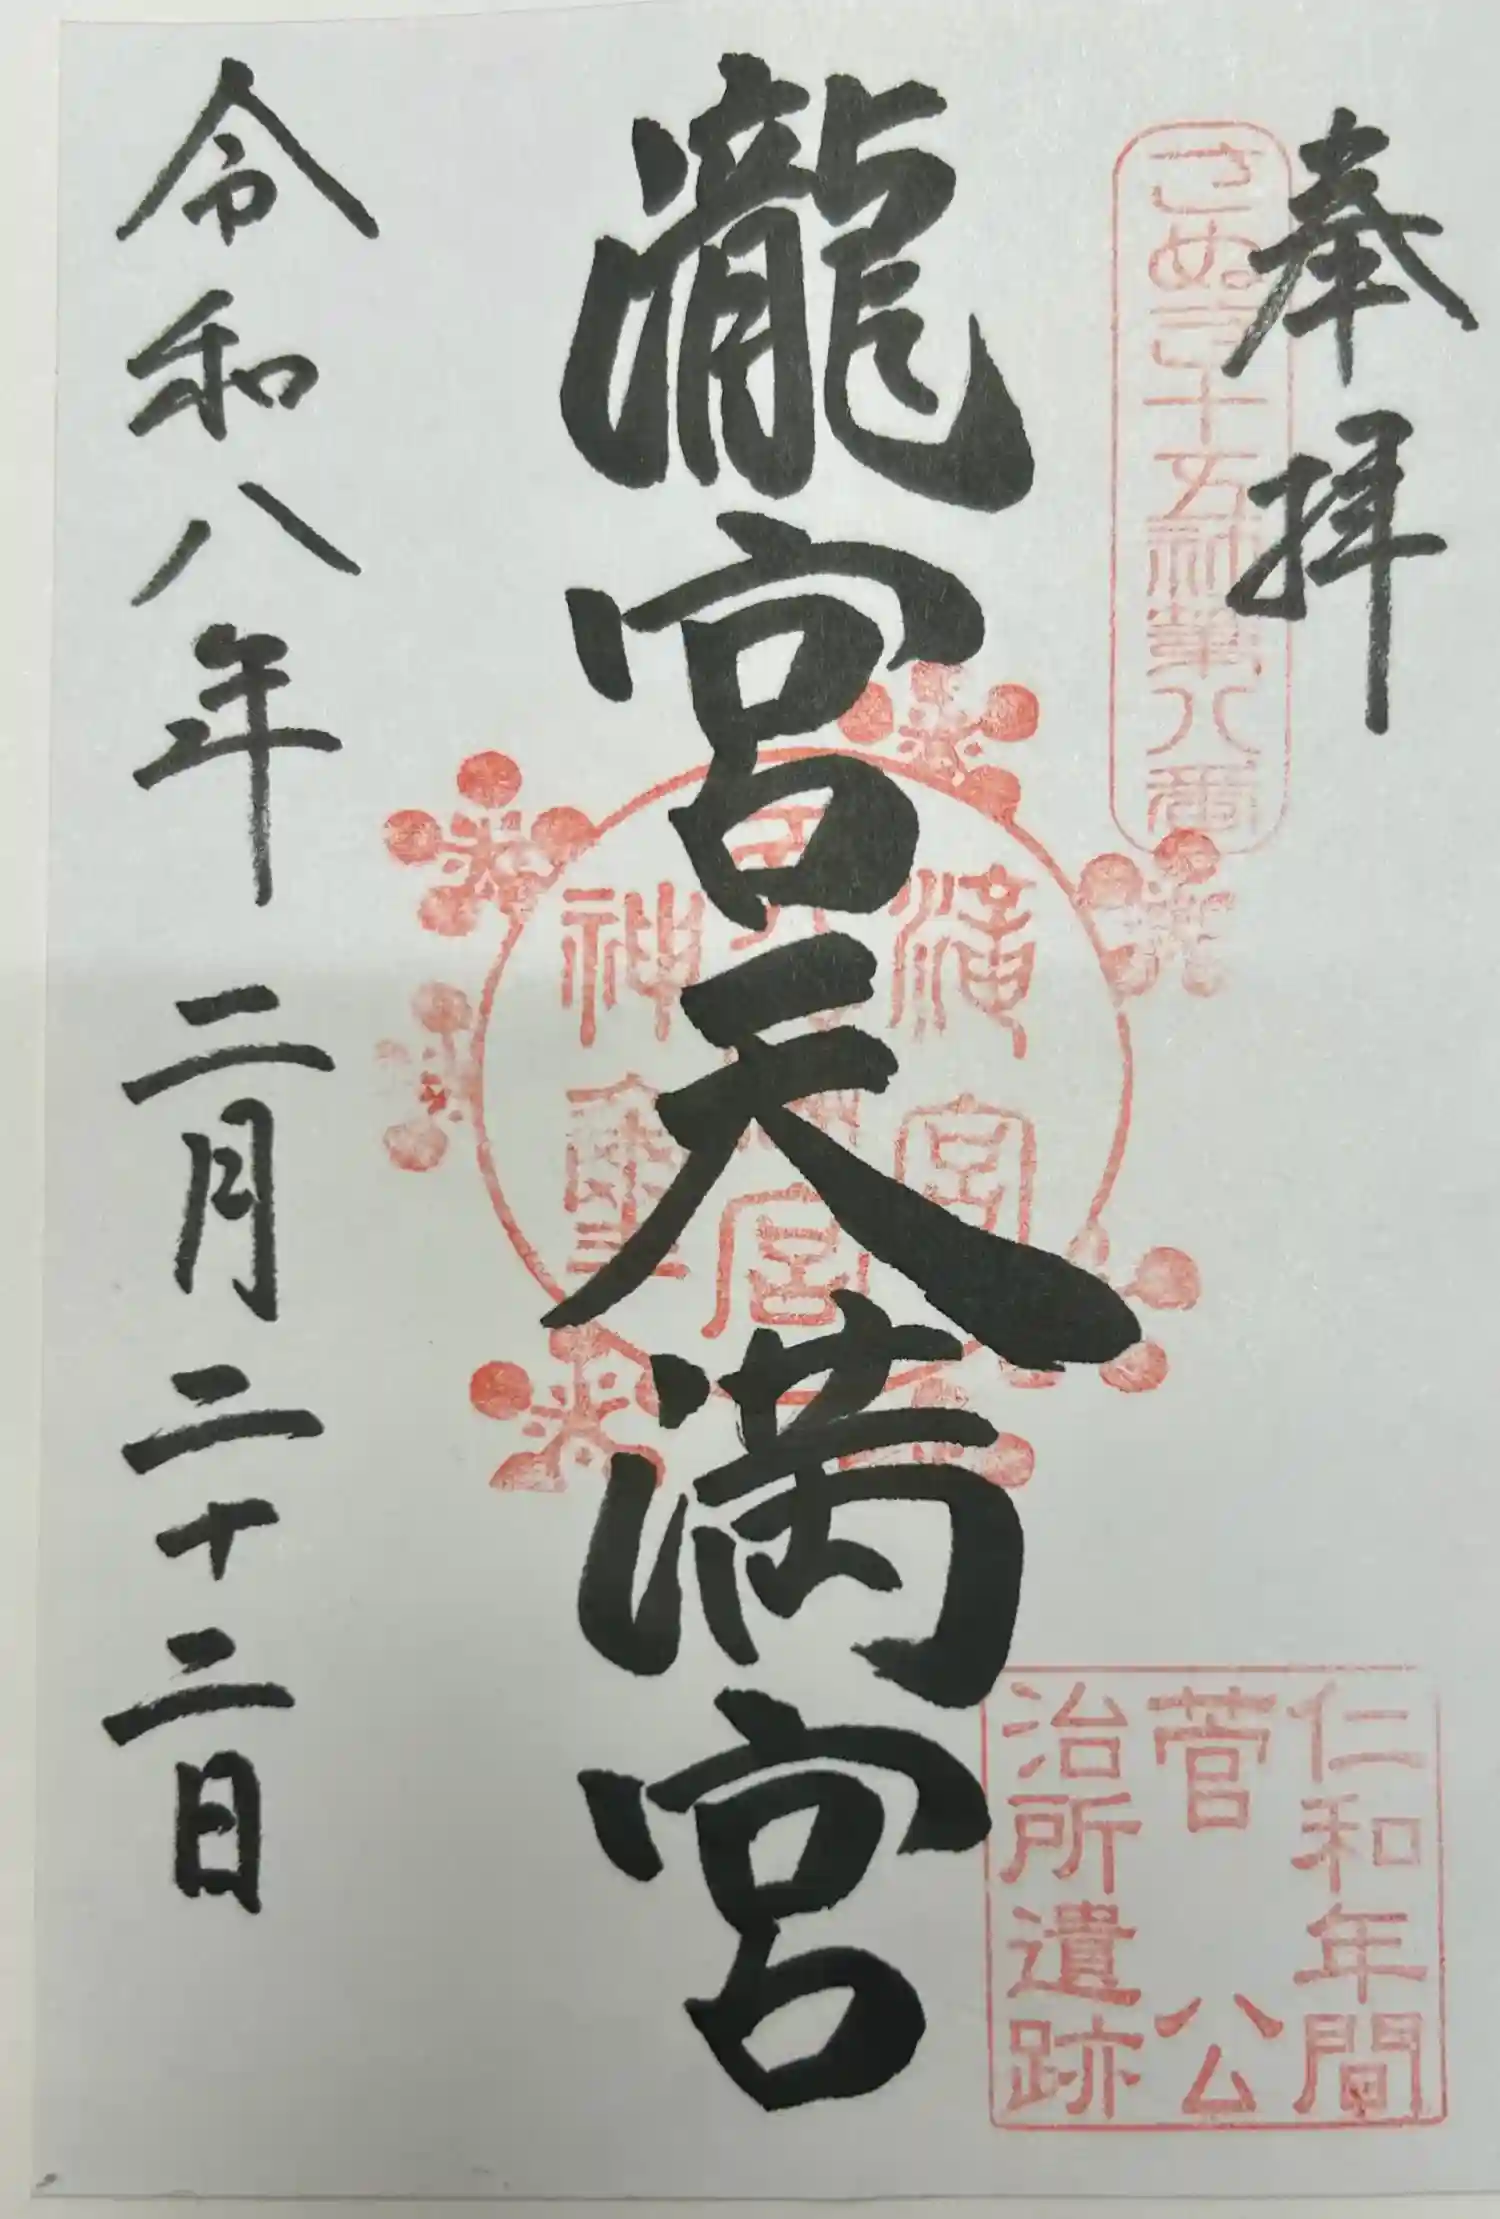 奉拝
さぬき十五社第八番
仁和年間
菅公
治所遺跡
瀧宮天満宮
滝宮
神璽
令和八年二月二十二日